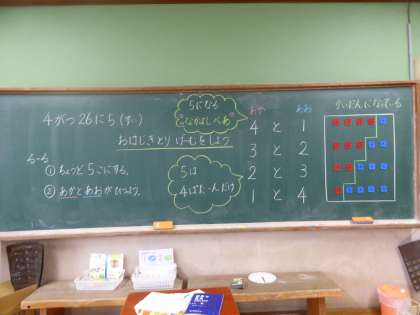 4がつ26にち(すい)
おはじきとりげーむをしよう
るーる
①ちょうど5こにする。
②あかとあおがひつよう。
5になる
5は
4ぱたーんだけ
あか あお
4と1
3と2
2と3
1と4
かいだんになっている